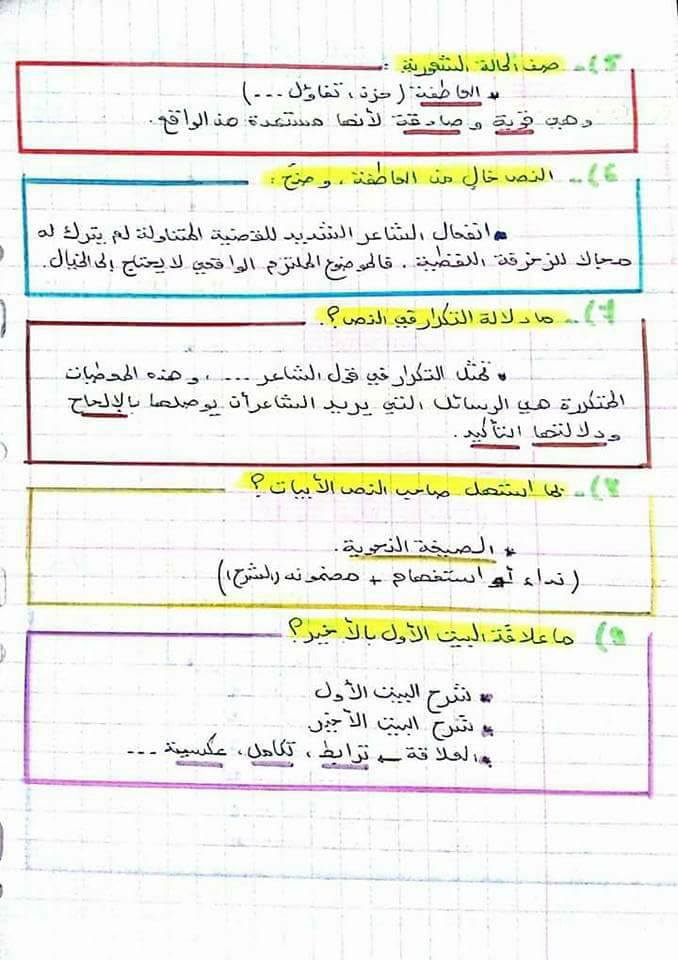 5)- صف الحالة الشعورية :
* العاطفة (حزن، تفاؤل ...)
وهي قوية و صادقة لأنها مستمدة من الواقع.
6)- النص خالٍ من العاطفة، وضّح :
* انفعال الشاعر الشديد للقضية المتناولة لم يترك له
مجالا للزخرفة اللفظية. فالموضوع الملتزم الواقعي لا يحتاج إلى الخيال.
7)- ما دلالة التكرار في النص؟.
* تمثّل التكرار في قول الشاعر ...، وهذه المعطيات
المتكررة هي الرسائل التي يريد الشاعر أن يوصلها بالإلحاح
ودلالتها التأكيد.
8)- بما استهل صاحب النص الأبيات؟
* الصيغة النحوية.
(نداء أو استفهام + مضمونه (الشرح))
9) ما علاقة البيت الأول بالأخير؟
* شرح البيت الأول
* شرح البيت الأخير
* العلاقة ← ترابط، تكامل، عكسية ...